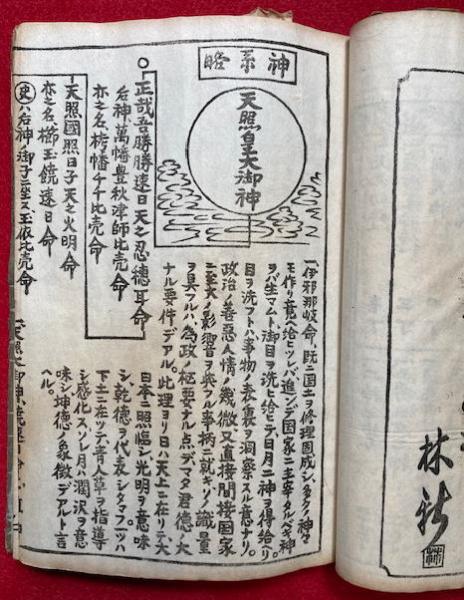 神系略
天照皇大御神
一伊邪那岐命、既ニ国土ヲ修理固成シ、多クノ神々
モ作リ竟ヘ給ヒツレバ進ンデ国家ニ主宰タルベキ神
ヲバ生マムト御目ヲ洗ヒ給ヒテ日月二神ヲ得給リ。
目ヲ洗フトハ事物ノ表裏ヲ洞察スル意ナリ。
政治ノ善悪人情ノ幾微又直接間接国家
ニ至大ノ影響ヲ與フル事柄ニ就キソノ識量
ヲ具フルハ為政ノ枢要ナル点デマタ君徳ノ大
ナル要件デアル。此理ヨリ日ハ天上ニ在リテ大
日本ニ照臨シ光明ヲ意味
シ、乾徳ヲ代表シタマフツハ
下土ニ在ツテ青人草ヲ指導
シ感化スソシ月ハ潤沢ヲ意
味シ坤徳ノ象徴デアルト言
ヘル。
正哉吾勝勝速日天之忍徳耳命
后神、萬幡豊秋津師比売命
亦之名、栲幡千千比売命
天照國照日子天之火明命
亦之名、櫛玉饒速日命
史ハ后神ノ御子ニ坐ス玉依比売命
林